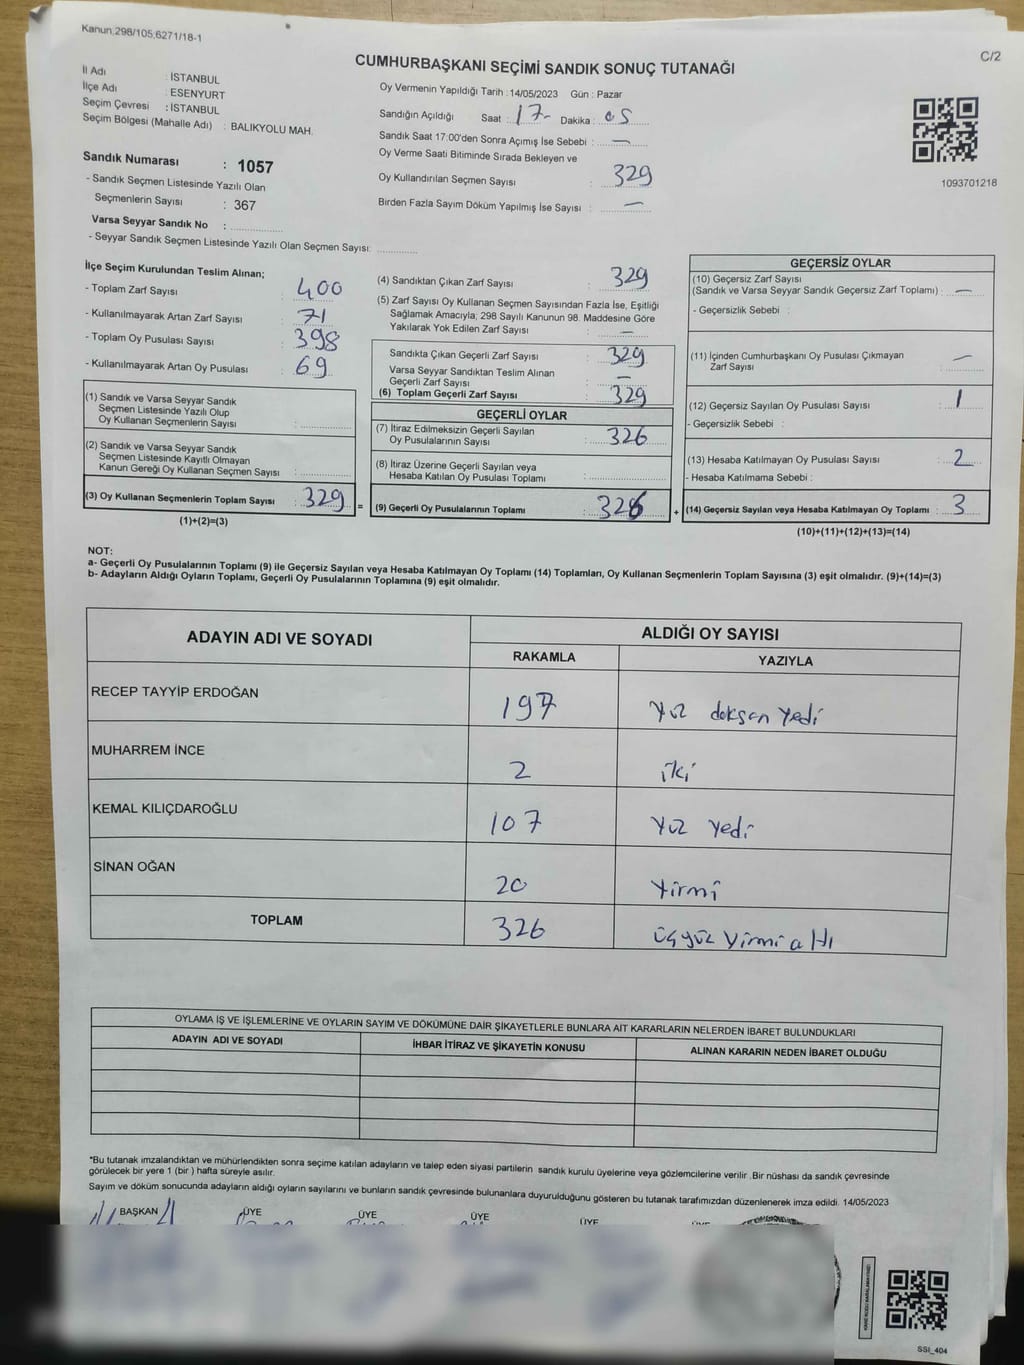 Kanun;298/105;6271/18-1
C/2
CUMHURBAŞKANI SEÇİMİ SANDIK SONUÇ TUTANAĞI
İl Adı : İSTANBUL
İlçe Adı : ESENYURT
Seçim Çevresi : İSTANBUL
Seçim Bölgesi (Mahalle Adı) : BALIKYOLU MAH.
Sandık Numarası : 1057
- Sandık Seçmen Listesinde Yazılı Olan
Seçmenlerin Sayısı : 367
Varsa Seyyar Sandık No :
- Seyyar Sandık Seçmen Listesinde Yazılı Olan Seçmen Sayısı:
Oy Vermenin Yapıldığı Tarih : 14/05/2023 Gün : Pazar
Sandığın Açıldığı Saat : 17- Dakika : 05
Sandık Saat 17:00'den Sonra Açımış İse Sebebi : —
Oy Verme Saati Bitiminde Sırada Bekleyen ve
Oy Kullandırılan Seçmen Sayısı : 329
Birden Fazla Sayım Döküm Yapılmış İse Sayısı : —
1093701218
İlçe Seçim Kurulundan Teslim Alınan;
- Toplam Zarf Sayısı : 400
- Kullanılmayarak Artan Zarf Sayısı : 71
- Toplam Oy Pusulası Sayısı : 398
- Kullanılmayarak Artan Oy Pusulası : 69
(1) Sandık ve Varsa Seyyar Sandık
Seçmen Listesinde Yazılı Olup
Oy Kullanan Seçmenlerin Sayısı :
(2) Sandık ve Varsa Seyyar Sandık
Seçmen Listesinde Kayıtlı Olmayan
Kanun Gereği Oy Kullanan Seçmen Sayısı :
(3) Oy Kullanan Seçmenlerin Toplam Sayısı : 329 =
(1)+(2)=(3)
(4) Sandıktan Çıkan Zarf Sayısı : 329
(5) Zarf Sayısı Oy Kullanan Seçmen Sayısından Fazla İse, Eşitliği
Sağlamak Amacıyla; 298 Sayılı Kanunun 98. Maddesine Göre
Yakılarak Yok Edilen Zarf Sayısı : —
Sandıkta Çıkan Geçerli Zarf Sayısı : 329
Varsa Seyyar Sandıktan Teslim Alınan
Geçerli Zarf Sayısı : —
(6) Toplam Geçerli Zarf Sayısı : 329
GEÇERLİ OYLAR
(7) İtiraz Edilmeksizin Geçerli Sayılan
Oy Pusulalarının Sayısı : 326
(8) İtiraz Üzerine Geçerli Sayılan veya
Hesaba Katılan Oy Pusulası Toplamı :
(9) Geçerli Oy Pusulalarının Toplamı : 326 +
GEÇERSİZ OYLAR
(10) Geçersiz Zarf Sayısı
(Sandık ve Varsa Seyyar Sandık Geçersiz Zarf Toplamı) : —
- Geçersizlik Sebebi :
(11) İçinden Cumhurbaşkanı Oy Pusulası Çıkmayan
Zarf Sayısı : —
(12) Geçersiz Sayılan Oy Pusulası Sayısı : 1
- Geçersizlik Sebebi :
(13) Hesaba Katılmayan Oy Pusulası Sayısı : 2
- Hesaba Katılmama Sebebi :
(14) Geçersiz Sayılan veya Hesaba Katılmayan Oy Toplamı : 3
(10)+(11)+(12)+(13)=(14)
NOT:
a- Geçerli Oy Pusulalarının Toplamı (9) ile Geçersiz Sayılan veya Hesaba Katılmayan Oy Toplamı (14) Toplamları, Oy Kullanan Seçmenlerin Toplam Sayısına (3) eşit olmalıdır. (9)+(14)=(3)
b- Adayların Aldığı Oyların Toplamı, Geçerli Oy Pusulalarının Toplamına (9) eşit olmalıdır.
ADAYIN ADI VE SOYADI ALDIĞI OY SAYISI
RAKAMLA YAZIYLA
RECEP TAYYİP ERDOĞAN 197 Yüz doksan yedi
MUHARREM İNCE 2 iki
KEMAL KILIÇDAROĞLU 107 Yüz Yedi
SİNAN OĞAN 20 Yirmi
TOPLAM 326 üçyüz yirmi altı
OYLAMA İŞ VE İŞLEMLERİNE VE OYLARIN SAYIM VE DÖKÜMÜNE DAİR ŞİKAYETLERLE BUNLARA AİT KARARLARIN NELERDEN İBARET BULUNDUKLARI
ADAYIN ADI VE SOYADI İHBAR İTİRAZ VE ŞİKAYETİN KONUSU ALINAN KARARIN NEDEN İBARET OLDUĞU
*Bu tutanak imzalandıktan ve mühürlendikten sonra seçime katılan adayların ve talep eden siyasi partilerin sandık kurulu üyelerine veya gözlemcilerine verilir .Bir nüshası da sandık çevresinde
görülecek bir yere 1 (bir ) hafta süreyle asılır.
Sayım ve döküm sonucunda adayların aldığı oyların sayılarını ve bunların sandık çevresinde bulunanlara duyurulduğunu gösteren bu tutanak tarafımızdan düzenlenerek imza edildi. 14/05/2023
BAŞKAN ÜYE ÜYE ÜYE ÜYE ÜYE
SSI_404